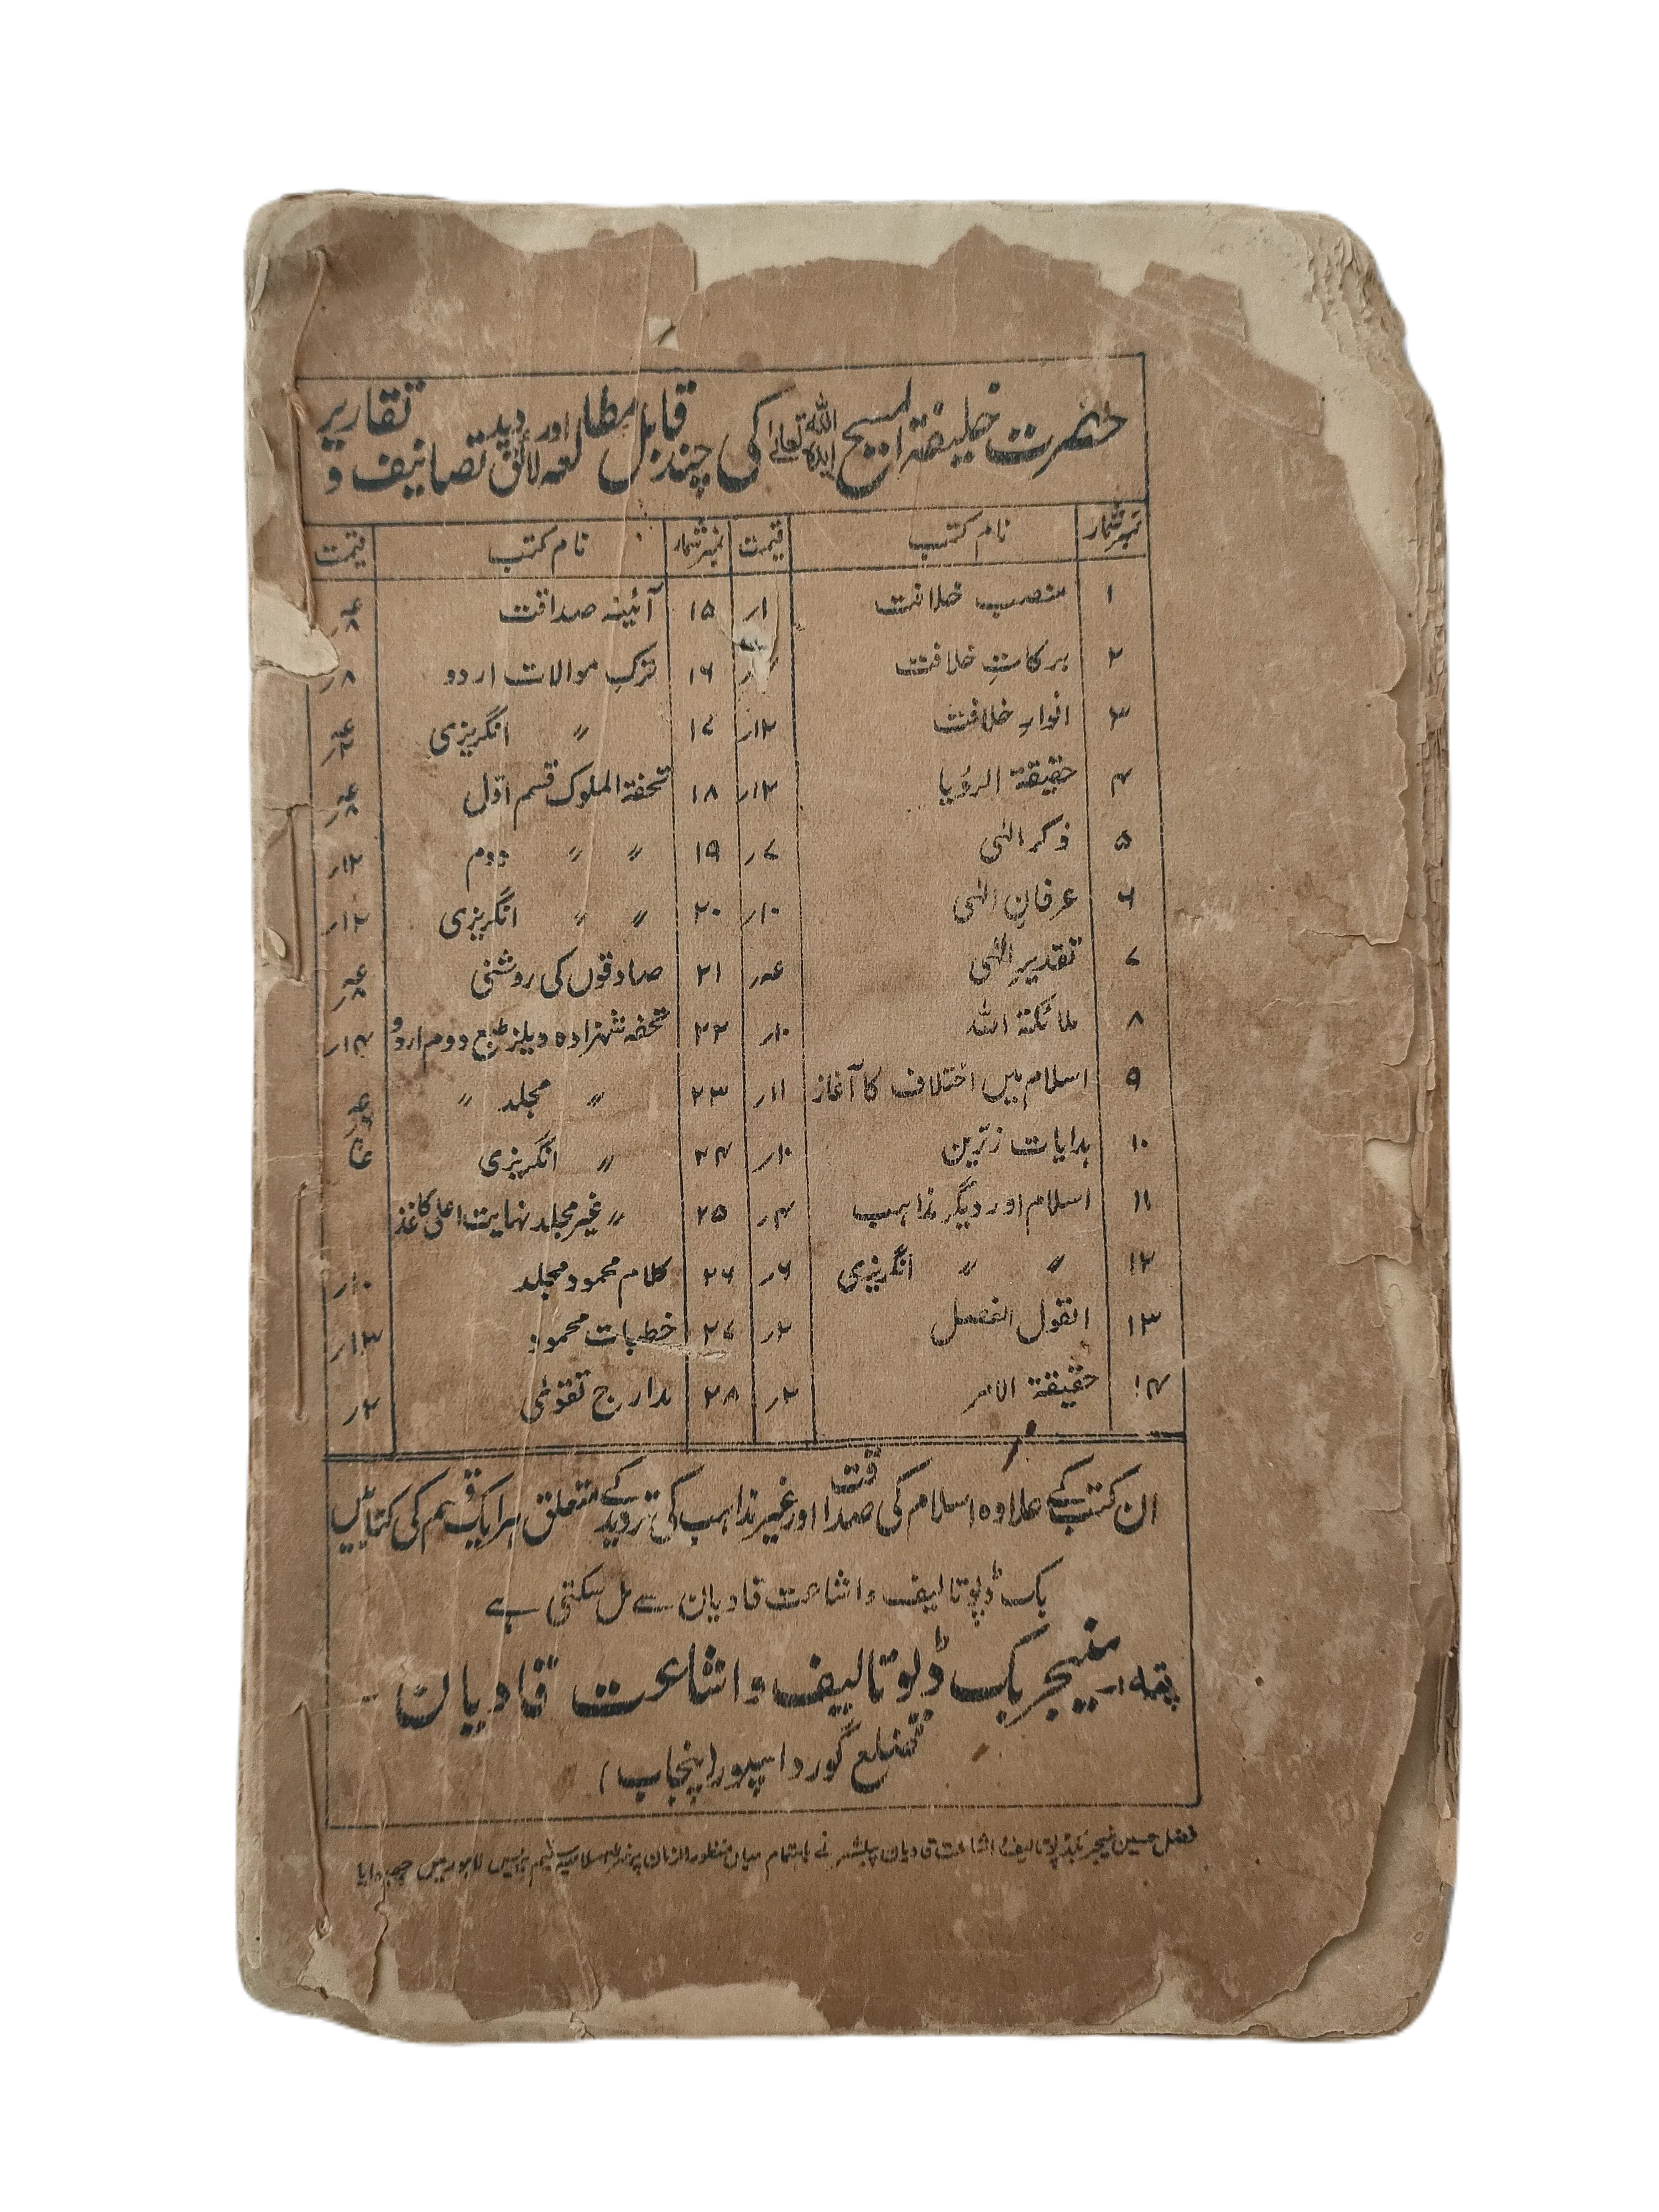 حضرت خلیفۃ المسیح ایدہ اللہ تعالیٰ کی چند قابل مطالعہ اور لائق دید تصانیف و تقاریر
نمبر شمار نام کتب قیمت نمبر شمار نام کتب قیمت
۱ منصب خلافت ۱ر ۱۵ آئینہ صداقت عہ ۸ر
۲ برکاتِ خلافت ۱۶ ترکِ موالات اردو ۸ر
۳ انوارِ خلافت ۱۲ر ۱۷〃 انگریزی عہ ۲ر
۴ حقیقۃ الرؤیا ۱۲ر ۱۸ تحفۃ الملوک قسم اوّل عہ ۸ر
۵ ذکر الٰہی ۷ر ۱۹ 〃 〃 دوم ۱۲ر
۶ عرفانِ الٰہی ۱۰ر ۲۰ 〃 〃 انگریزی ۱۲ر
۷ تقدیرِ الٰہی عہر ۲۱ صادقوں کی روشنی عہ ۸ر
۸ ملائکۃ اللہ ۱۰ر ۲۲ تحفہ شہزادہ ویلز طبع دوم اردو ۱۴ر
۹ اسلام میں اختلاف کا آغاز ۱۱ر ۲۳ 〃 مجلد 〃 عہ
۱۰ ہدایات زرّین ۱۰ر ۲۴ 〃 انگریزی
۱۱ اسلام اور دیگر مذاہب ۴ر ۲۵ 〃 غیر مجلد نہایت اعلیٰ کاغذ
۱۲ 〃 〃 انگریزی ۶ر ۲۶ کلام محمود مجلد ۱۰ر
۱۳ القول الفصل ۲ر ۲۷ خطبات محمود ۱۳ر
۱۴ حقیقۃ الامر ۲ر ۲۸ مدارج تقویٰ ۲ر
ان کتب کے علاوہ اسلام کی صداقت اور غیر مذاہب کی تردید کے متعلق ہر ایک قسم کی کتابیں
بک ڈپو تالیف و اشاعت قادیان سے مل سکتی ہے
پتہ:۔ منیجر بک ڈپو تالیف و اشاعت قادیان۔
ضلع گورداسپور (پنجاب)
فضل حسین منیجر بکڈپو تالیف و اشاعت قادیان پبلشر نے باہتمام میاں منظور الزمان پرنٹر اسلامیہ سٹیم پریس لاہور میں چھپوایا